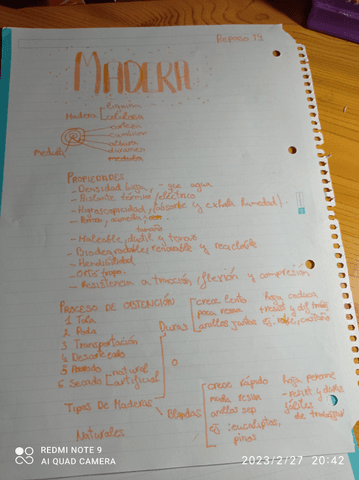 Repaso T3
MADERA
Madera [ lignina
celulosa
corteza
cambium
albura
duramen
medula
medula
PROPIEDADES
- Densidad baja, - que agua
- Aislante térmico/eléctrico
- Higroscopicidad, (absorbe y exhala humedad).
tamaño
- Maleable, dúctil y tenaz
- Biodegradable, renovable y reciclable
- Hendibilidad
- Resistencia a tracción, flexión y compresión
PROCESO DE OBTENCIÓN
1 Tala
2 Poda
3 Transportación
4 Descortezado
5 Troceado
6 Secado [ natural
artificial
Duras [ crece lento
poca resina
anillos juntos
Hoja caduca
ej: roble, castaño
Tipos De Maderas
Blandas
crece rápido
mucha resina
anillos sep
ej: eucaliptos,
pinos
Hoja perenne
- resist y duras
fáciles
de trabajar
Naturales
REDMI NOTE 9
AI QUAD CAMERA
2023/2/27 20:42